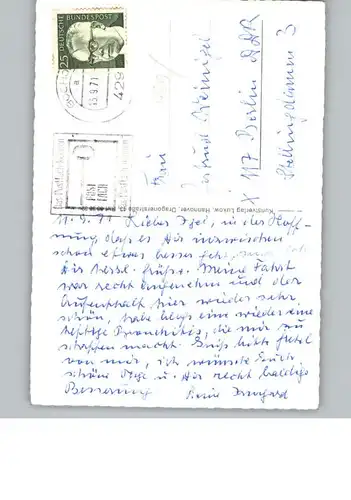 25
DEUTSCHE
BUNDESPOST
13.9.71
a
429
Ihr Postfach
POST
FACH
Kunstverlag Lukow, Hannover, Dragonerstraße
Frau
X 117 Berlin DDR
11.9.71 Lieber Igel, in der Hoff-
nung, dass es Dir inzwischen
schon etwas besser geht,
Dir herzl. Grüße. Meine Fahrt
war recht angenehm und der
Aufenthalt hier wieder sehr
schön, habe bloß eine wieder eine
heftige Bronchitis, die mir zu
schaffen macht. Grüß bitte
von mir, ich wünsche Euch
schöne Tage u. Dir recht baldige
Besserung Deine Irmgard